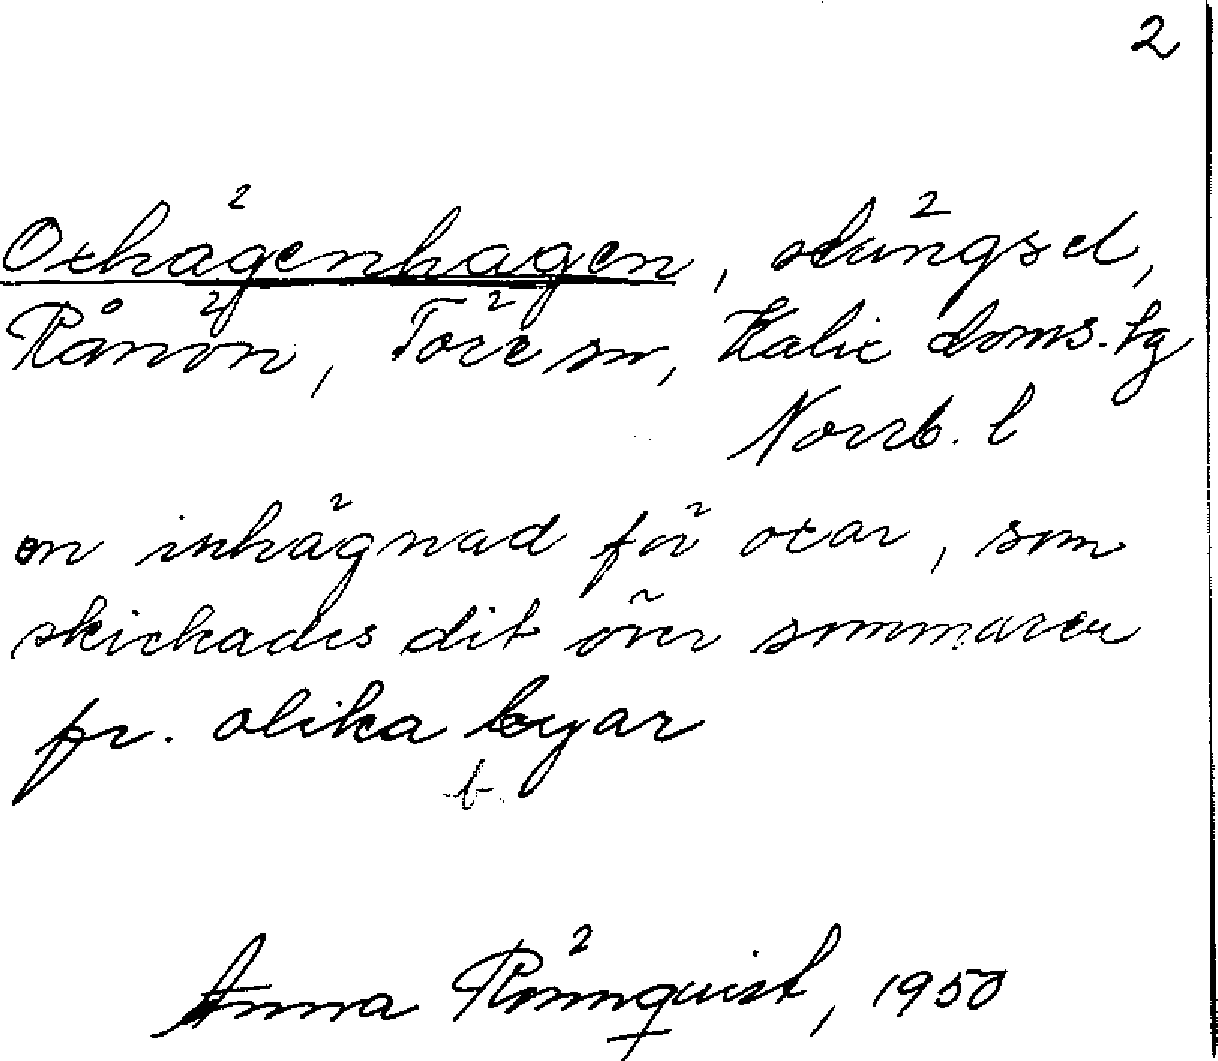 2
Oxhägenhagen, stängsel,
Rånön, Töre sn, Kalix doms.tg
Norrb. l
en inhägnad för oxar, som
skickades dit över sommaren
fr. olika byar
b.
Anna Rönnquist, 1950